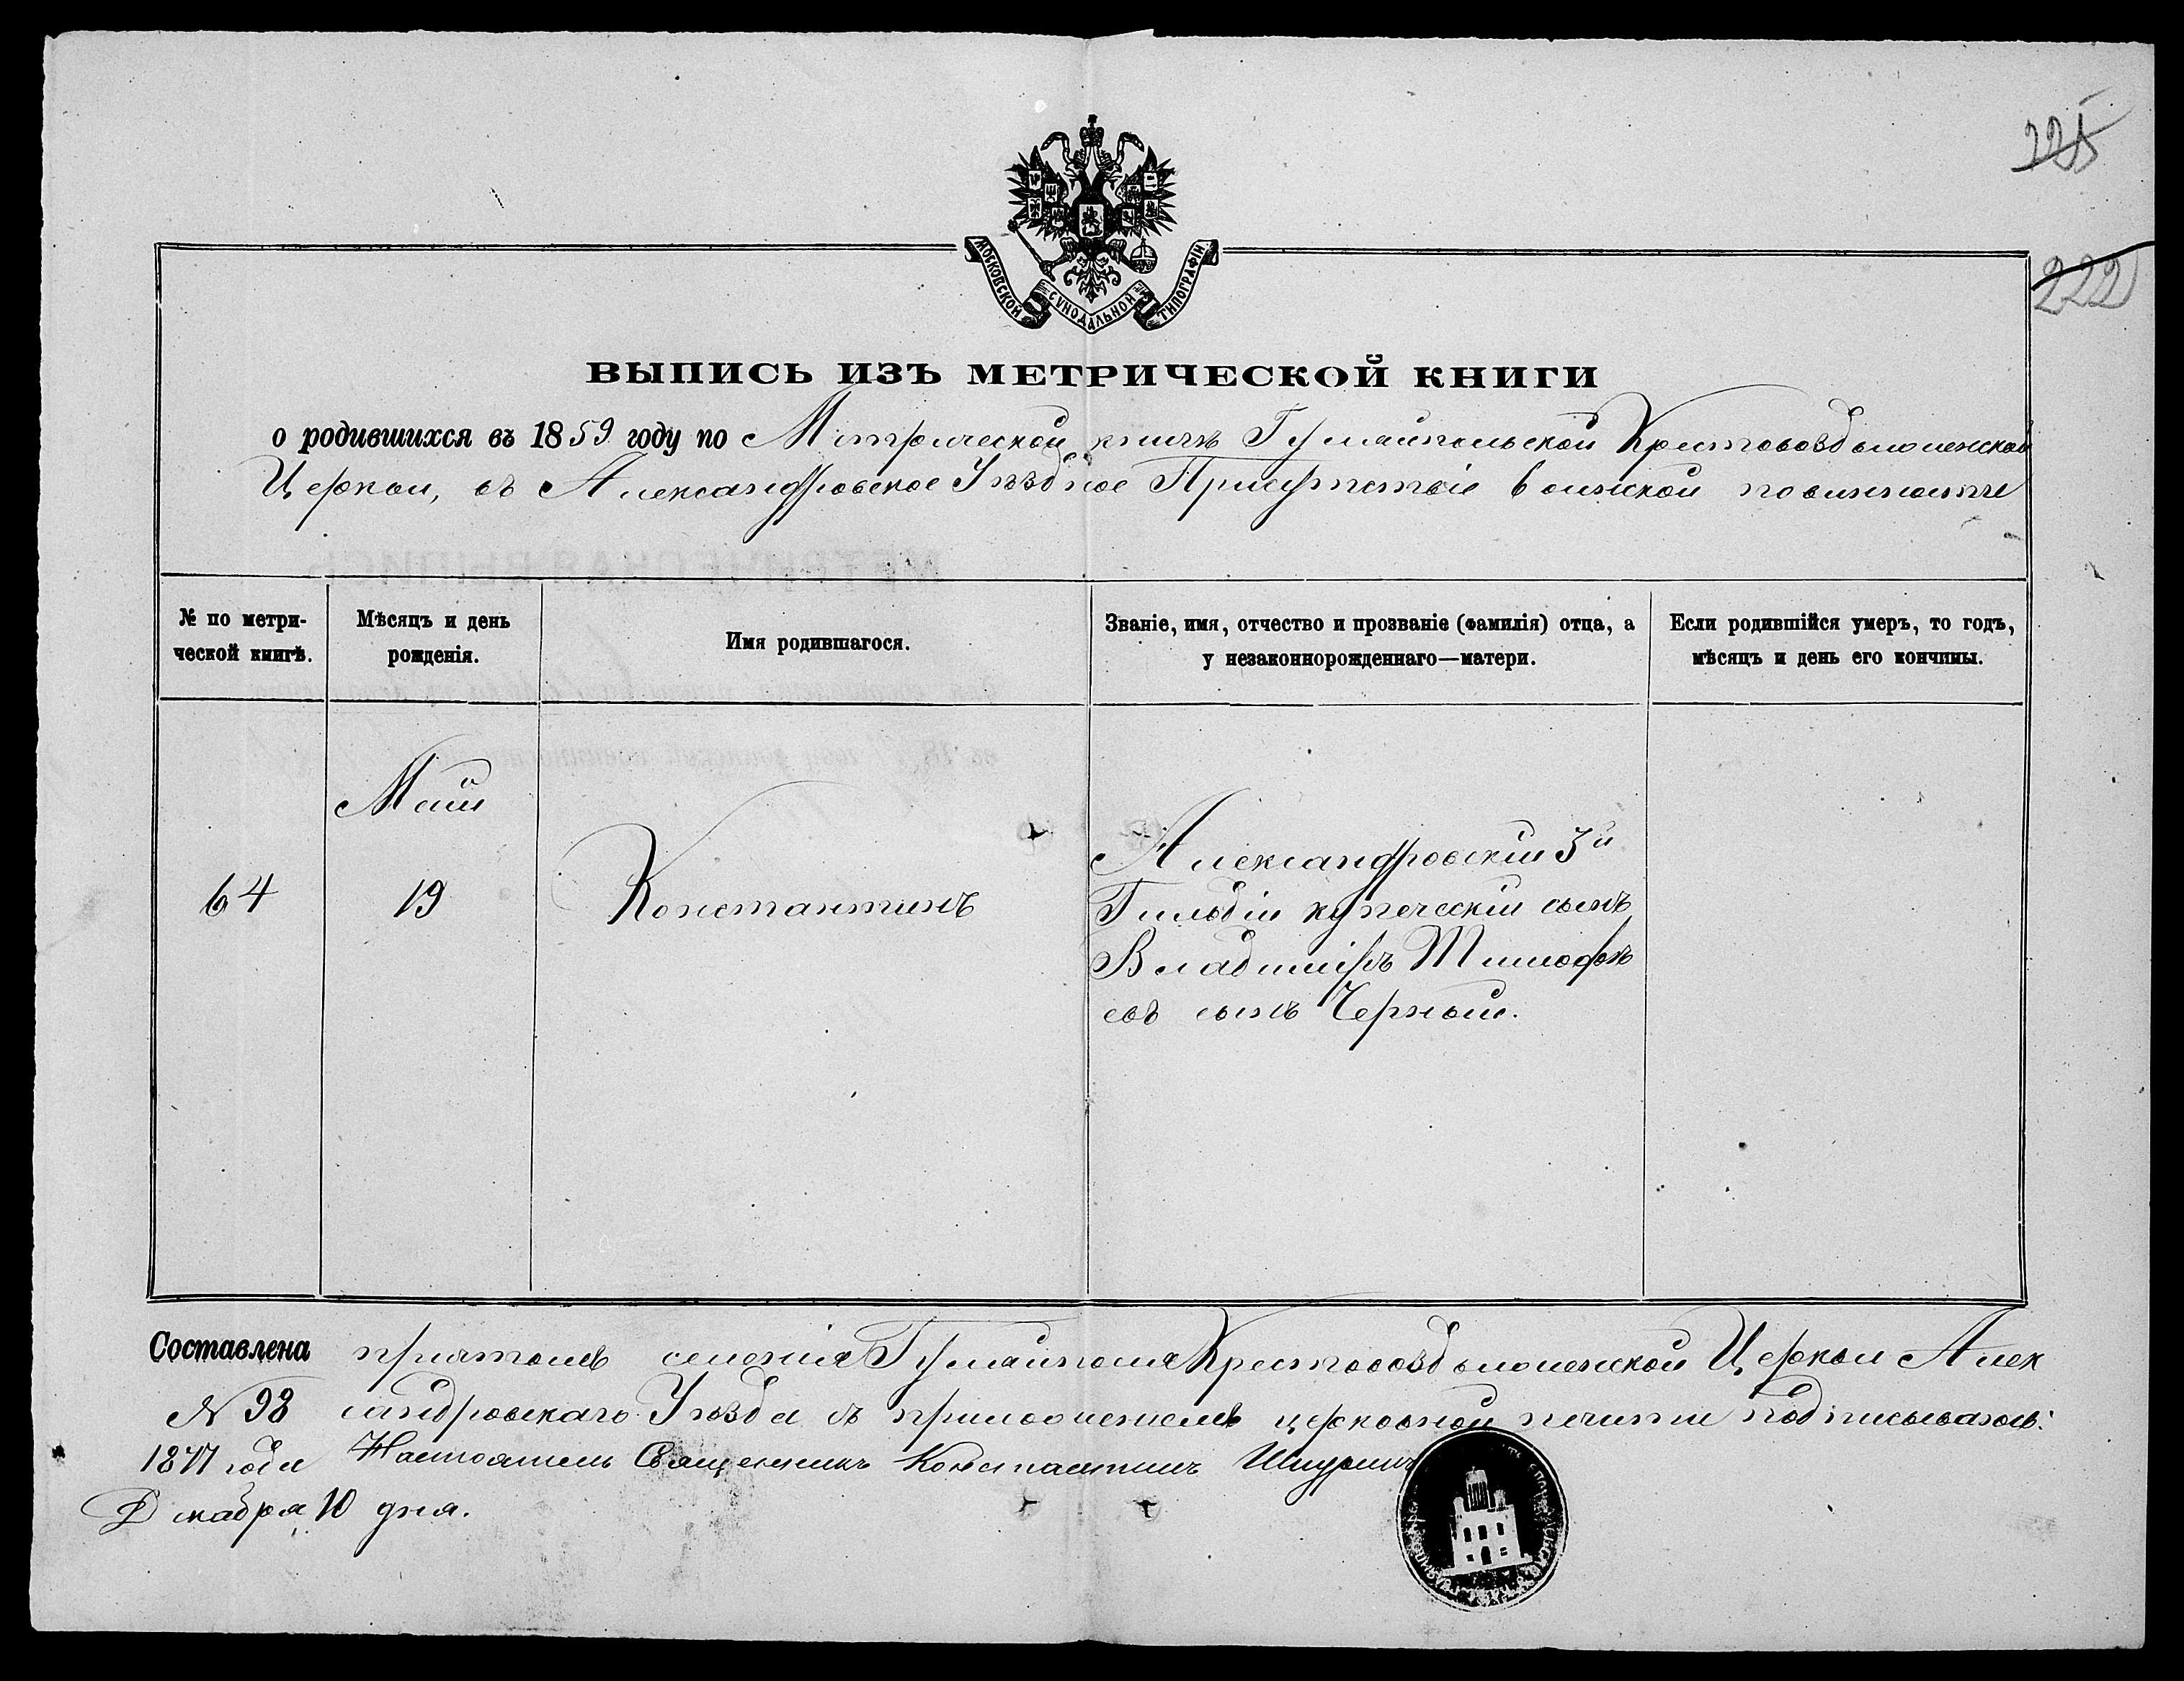 225
222
МОСКОВСКОЙ СѴНОДАЛЬНОЙ ТИПОГРАФІИ
ВЫПИСЬ ИЗЪ МЕТРИЧЕСКОЙ КНИГИ
о родившихся въ 1859 году по Метрической книгѣ Гуляйпольской Крестовоздвиженской
Церкви, въ Александровское Уѣздное Присутствіе воинской повинности
№ по метри-
ческой книгѣ.
Мѣсяцъ и день
рожденія.
Имя родившагося.
Званіе, имя, отчество и прозваніе (фамилія) отца, а
у незаконнорожденнаго—матери.
Если родившійся умеръ, то годъ,
мѣсяцъ и день его кончины.
Май
64
19
Константинъ
Александровскій 3й
Гильдіи купеческій сынъ
Владиміръ Тимофѣ
евъ сынъ Черный.
Составлена причтомъ селенія Гуляйполя Крестовоздвиженской Церкви Алек
№ 98 сандровскаго Уѣзда съ приложеніемъ церковной печати подписываюсь:
1877 года Настоятель Священникъ Константинъ
Декабря 10 дня.